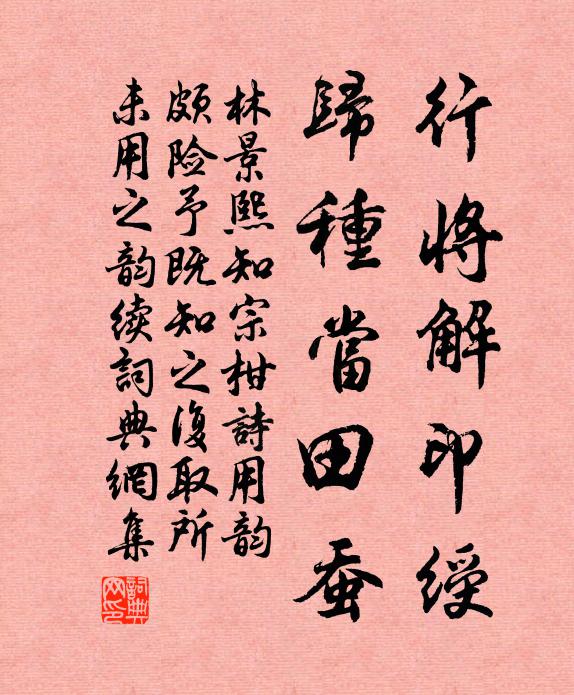 行將解印綬
歸種當田蚕
林景熙知宗柑詩用韵
頗险予既知之復取所
未用之韵续詞典網集
詞典網印